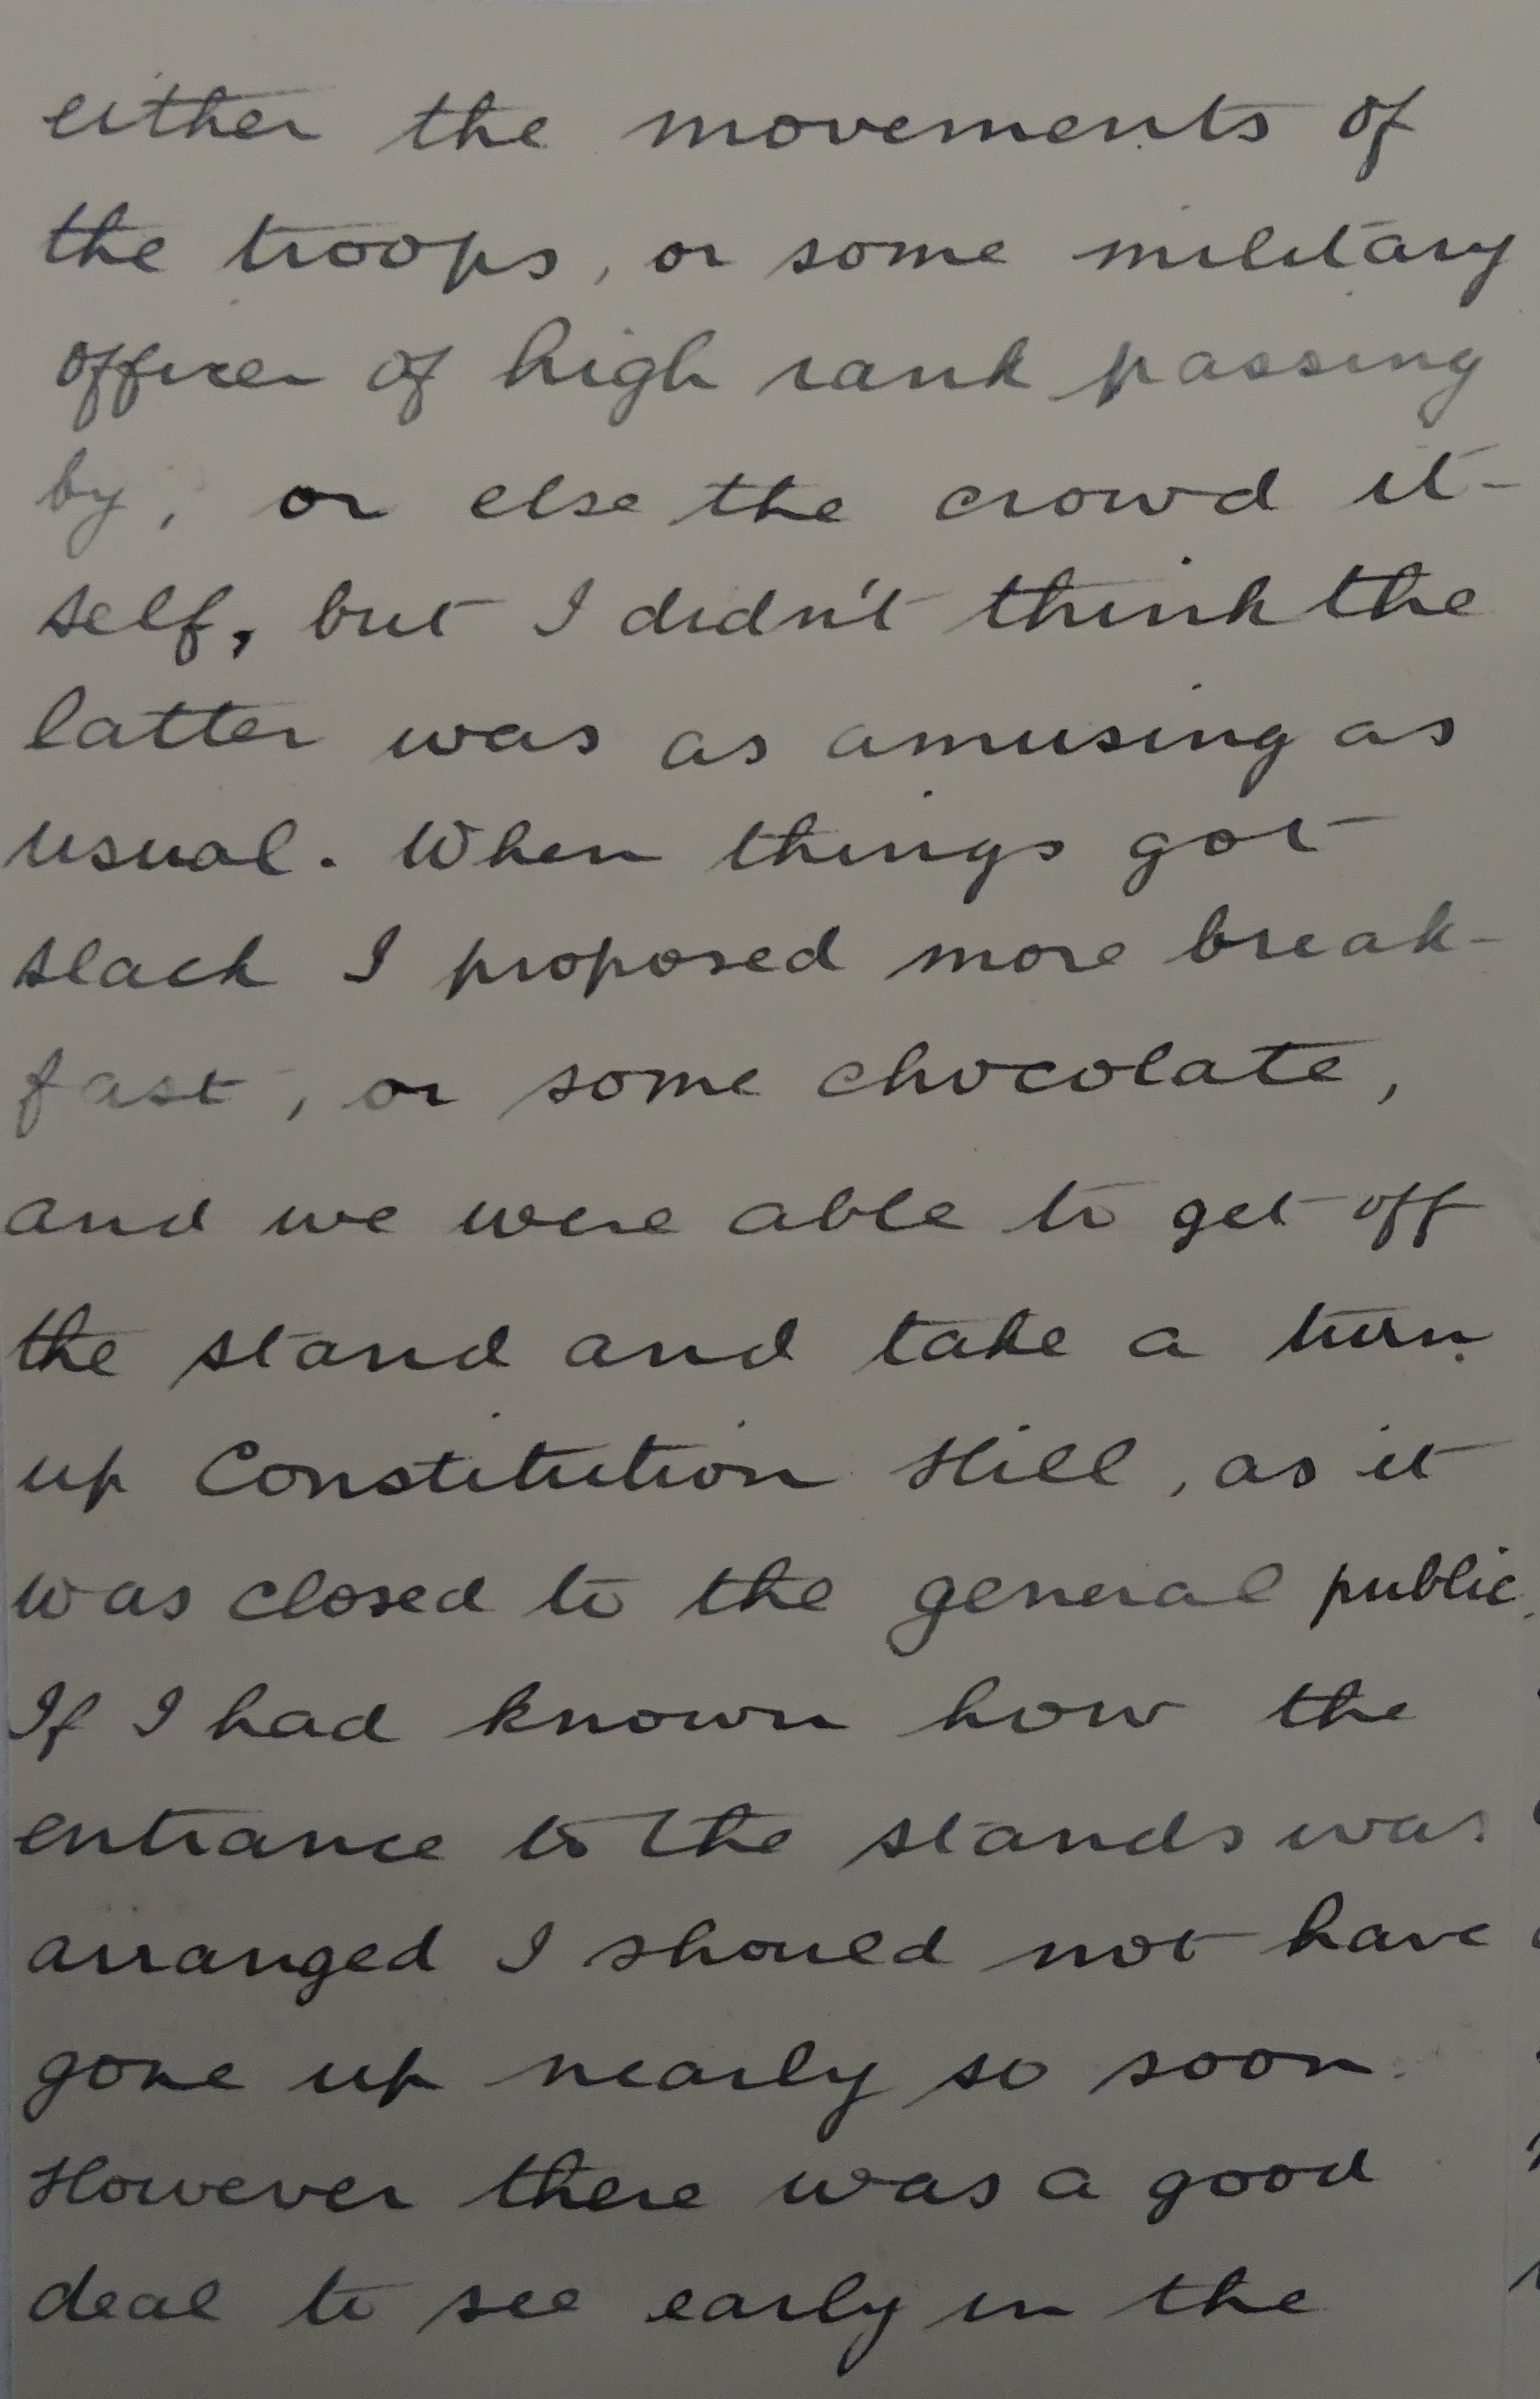 either the movements of
the troops, or some military
officer of high rank passing
by, or else the crowd it-
self, but I didn't think the
latter was as amusing as
usual. When things got
slack I proposed more break-
fast, or some chocolate,
and we were able to get off
the stand and take a turn
up Constitution Hill, as it
was closed to the general public.
If I had known how the
entrance to the stands was
arranged I should not have
gone up nearly so soon.
However there was a good
deal to see early in the